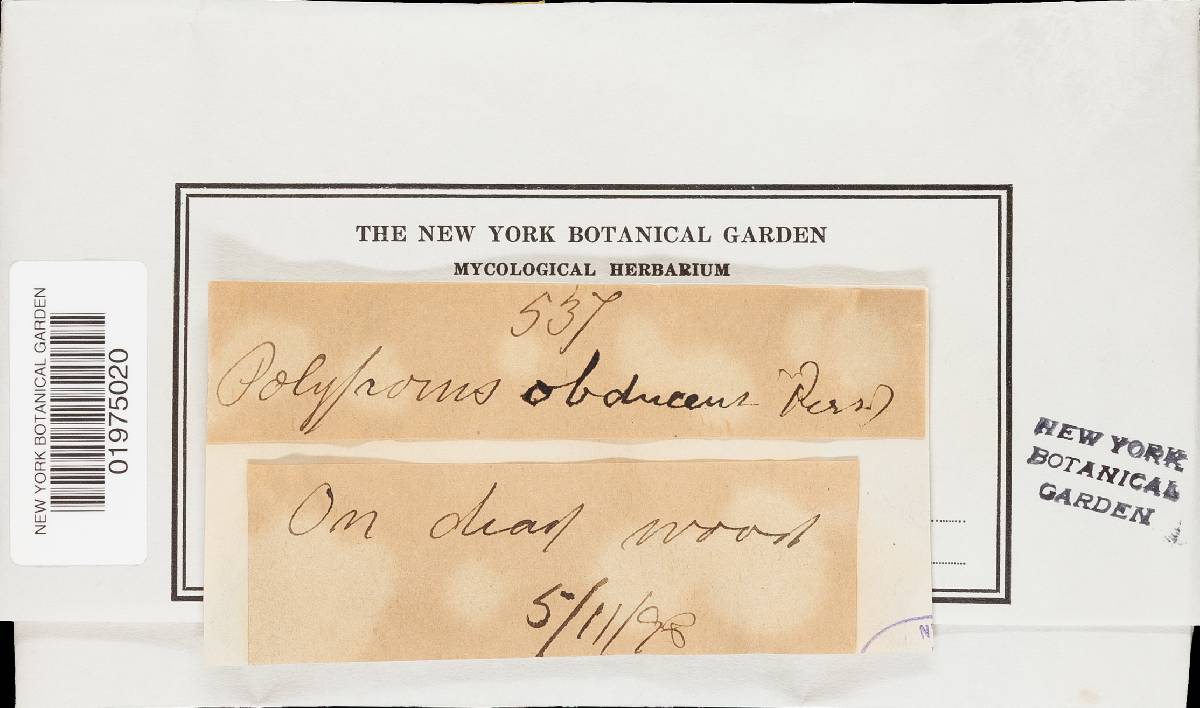 THE NEW YORK BOTANICAL GARDEN
MYCOLOGICAL HERBARIUM
537
Polyporus obducens Pers
On dead wood
5/11/98
NEW YORK BOTANICAL GARDEN
01975020
NEW YORK
BOTANICAL
GARDEN
N